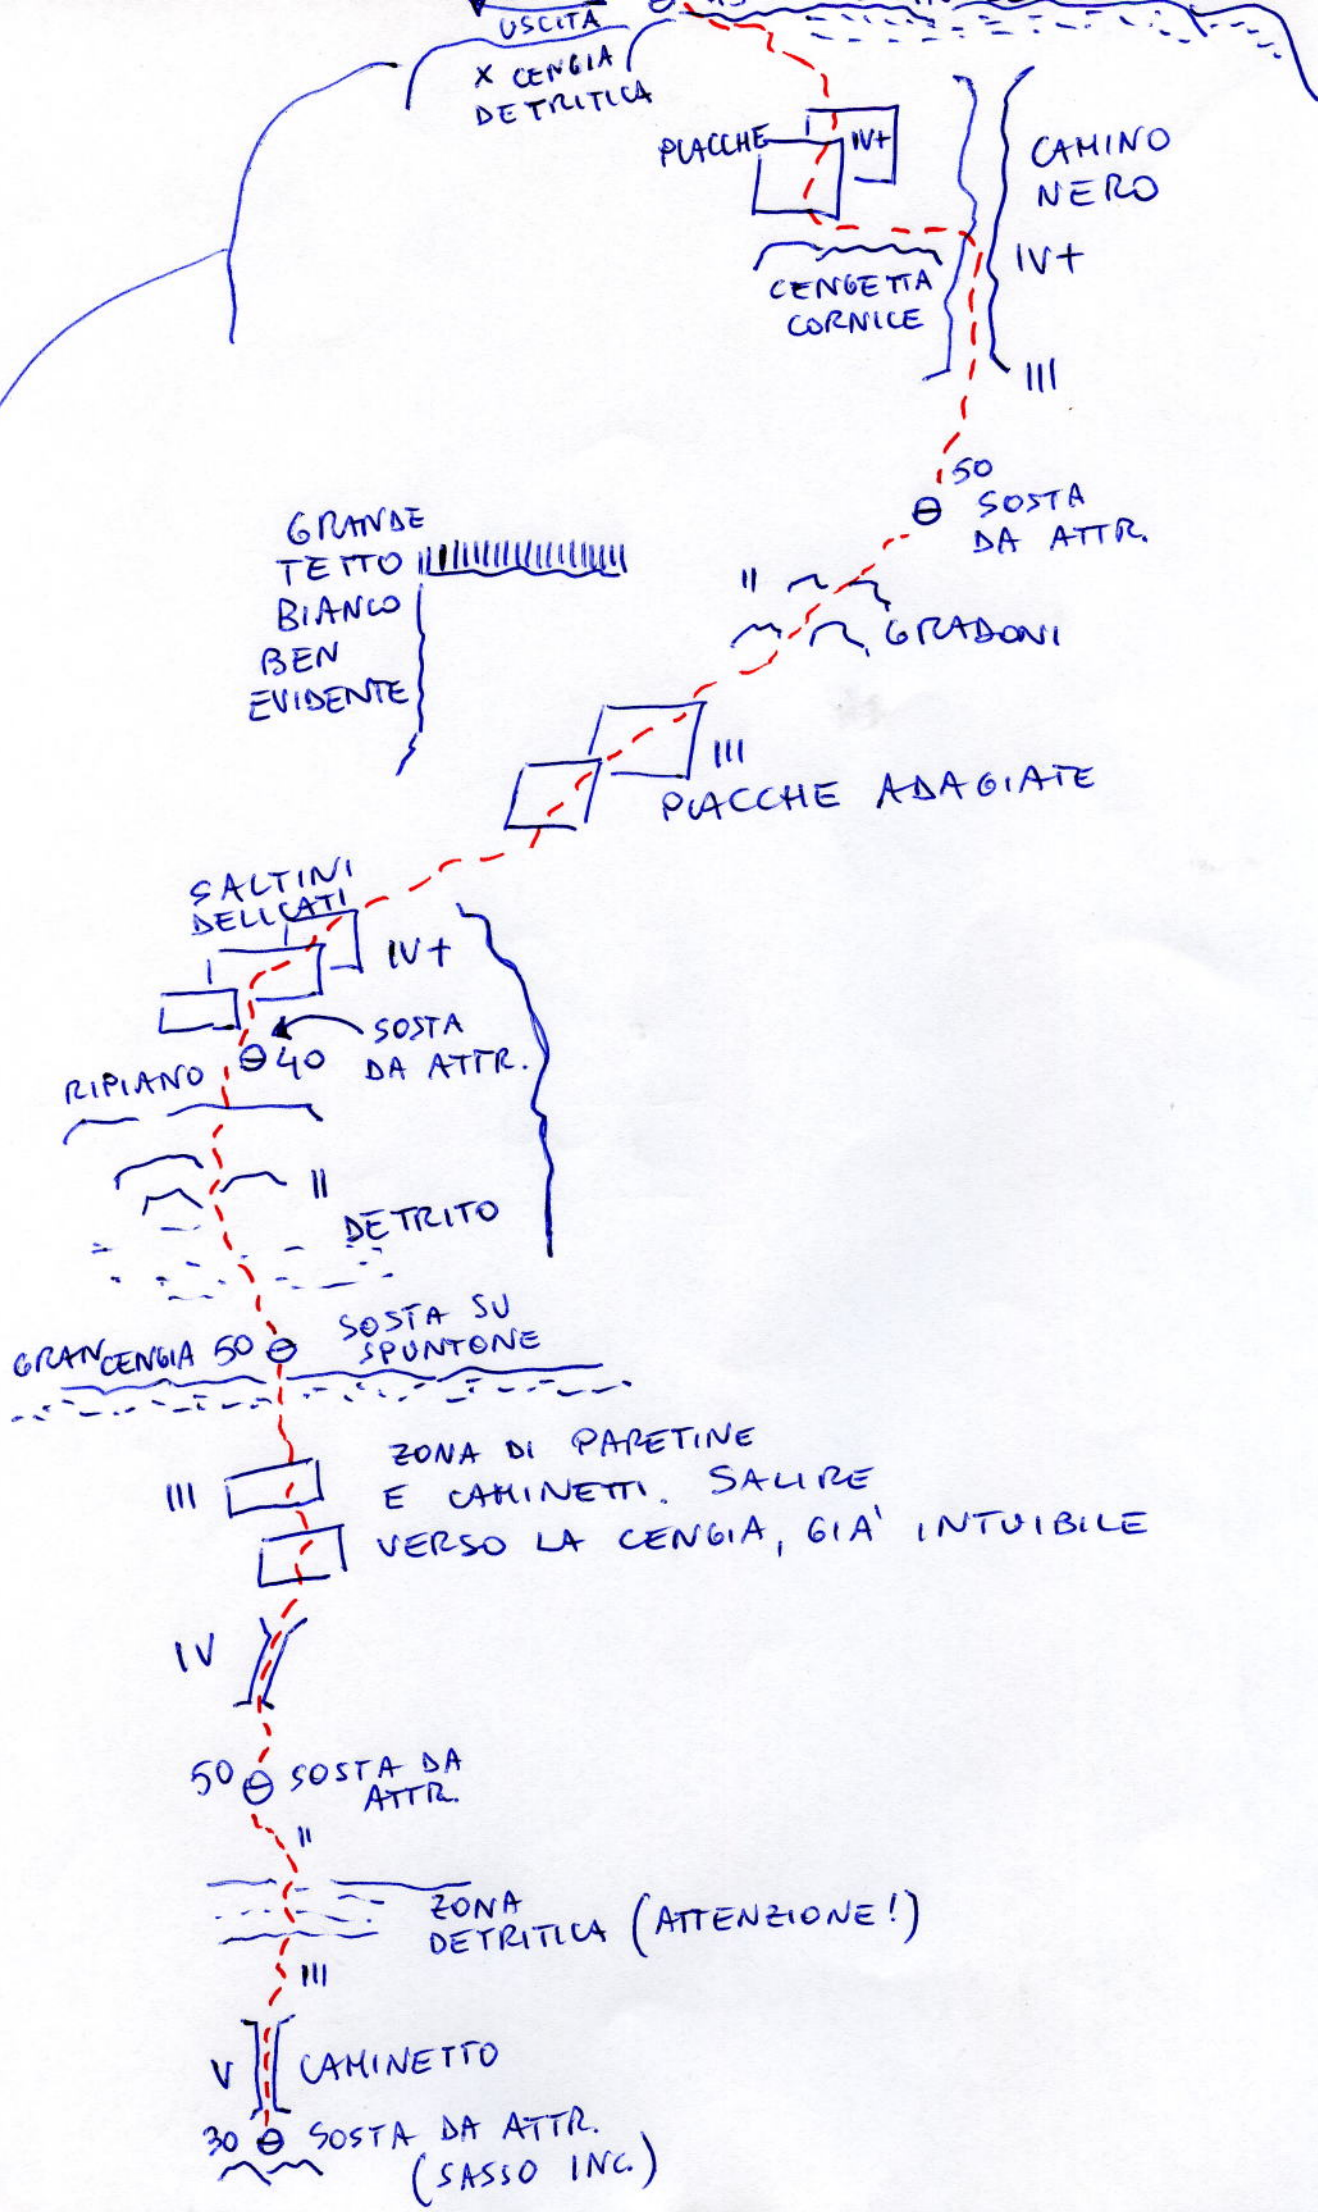 USCITA
X CENGIA
DETRITICA
PLACCHE
IV+
CAMINO
NERO
IV+
CENGETTA
CORNICE
III
50
SOSTA
DA ATTR.
GRANDE
TETTO
BIANCO
BEN
EVIDENTE
II
GRADONI
III
PLACCHE ADAGIATE
SALTINI
DELICATI
IV+
SOSTA
DA ATTR.
40
RIPIANO
II
DETRITO
SOSTA SU
SPUNTONE
GRAN CENGIA 50
ZONA DI PARETINE
E CAMINETTI. SALIRE
VERSO LA CENGIA, GIA' INTUIBILE
III
IV
50 SOSTA DA
ATTR.
II
ZONA
DETRITICA (ATTENZIONE!)
III
V CAMINETTO
30 SOSTA DA ATTR.
(SASSO INC.)